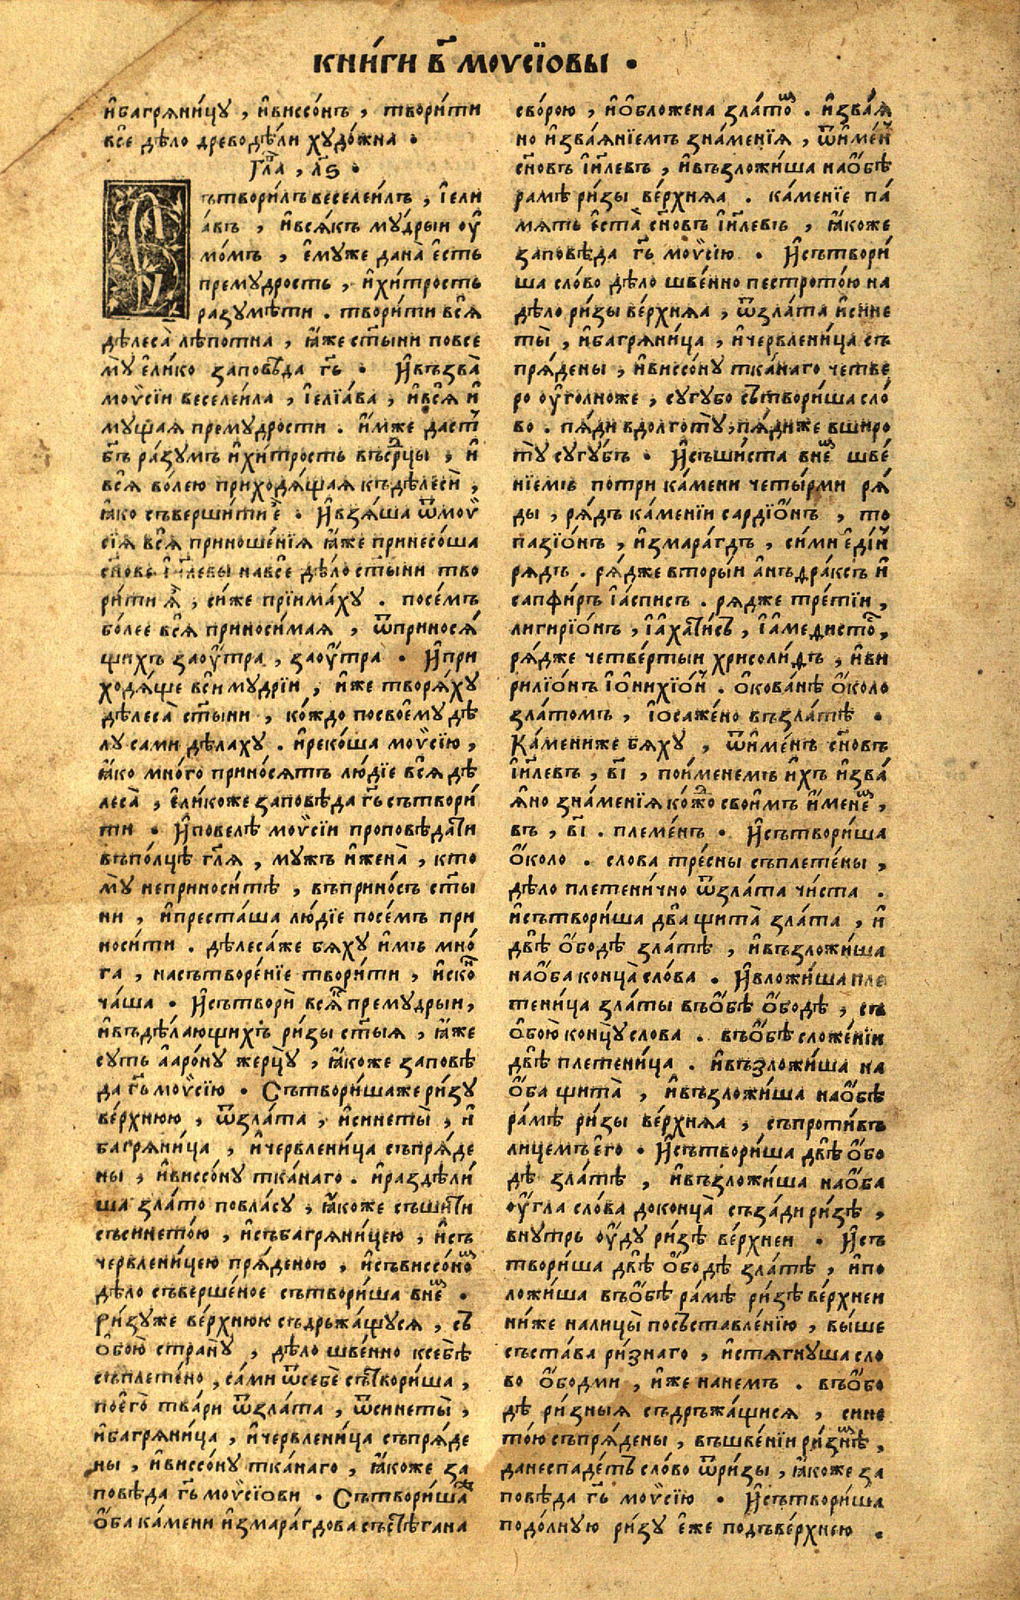 КНИ́ГИ В҃ МОѴСЇОВЫ .
и҆багряни́цу , и҆виссо́нъ , твори́ти
все дѣло древодѣли худо́жна .
Гла҃ , л҃ѕ .
ътвори́лъ веселеи́лъ , і҆ели
а́въ , и҆вся́къ му́дрыи оу҆
мо́мъ , е҆му́же дана̀ е҆сть
прему́дрость , и҆хи́трость
разумѣ́ти . твори́ти вся̑
дѣлеса̀ лѣпотна , ꙗ҆́же ст҃ы́ни повсе
мꙋ̀ е҆ли́ко заповѣ́да гь҃ . И҆възва̀
моѵ̈си́и веселеи́ла , і҆елїа́ва , и҆вся̑ и҆
му́щая прему́дрости . и҆́мже даст̾
бг҃ъ ра́зумъ и҆хи́трость въсе́рцы , и҆
вся̑ во́лею приходя́щая къдѣлесѝ ,
ꙗ҆́ко съверши́ти е҆̀ . И҆взя́ша ѿмоѵ̈
сі́я вся̑ приноше́нїя ꙗ҆́же принесо́ша
сн҃овѣ і҆и҃левы навсе дѣ́ло ст҃ы́ни тво
ри́ти ꙗ҆̀ , си́же прїима́ху . посе́мъ
бо́лее вся̑ приноси́мая , ѿпринося́
щихъ заоу҆́тра , заоу҆́тра . И҆при
ходя́ще вси̑ му́дрїи , и҆́же творя́ху
дѣлеса̀ ст҃ы́ни , ко́ждо посвоемꙋ дѣ
лу сами дѣлаху . и҆реко́ша моѵ̈сі́ю ,
ꙗ҆́ко мно́го прино́сятъ лю́дїе вся̑ дѣ
леса̀ , е҆ли́коже заповѣ́да гь҃ сътвори́
ти . И҆повелѣ̀ моѵ̈сі́и проповѣ́дати
въполцѣ̀ гл҃я , му́жъ и҆жена̀ , кто
мꙋ̀ неприноси́тѣ , въприно́съ ст҃ы
ни , и҆преста́ша лю́дїе посе́мъ при
носи́ти . дѣлеса́же бя́ху и҆́мъ мно́
га , насътворе́нїе твори́ти , и҆ско
ча́ша . И҆сътворѝ вся́къ прему́дрыи ,
и҆въдѣ́лающихъ ри́зы ст҃ы́я , ꙗ҆́же
суть а҆аро́ну жерцꙋ̀ , ꙗ҆́коже заповѣ́
да гь҃ моѵ̈сі́ю . Сътвори́шаже ри́зу
ве́рхнюю , ѿзла́та , и҆синеты̀ , и҆
багряни́ца , и҆червлени́ца съпря́де
ны , и҆виссо́ну тка́наго . и҆раздѣли́
ша зла́то повла́су , ꙗ҆́коже съши́ти
съсинето́ю , и҆събагряни́цею , и҆съ
червлени́цею пря́деною , и҆съвиссо́но
дѣ́ло съверше́ное сътвори́ша вне҆ .
Ри́зуже ве́рхнюю съдръжа́щуся , съ
ѻ҆бою̀ странꙋ̀ , дѣ́ло шве́нно ксебѣ̀
съплете́но , са́ми ѿсебѐ сътвори́ша ,
пое҆го̀ тва́ри ѿзла́та , ѿсинеты̀ ,
и҆багряни́ца , и҆червлени́ца съпря́де
ны , и҆виссо́ну тка́наго , ꙗ҆́коже за
повѣ́да гь҃ моѵ̈сі́ови . Сътвори́ша
ѻ҆́ба ка́мени и҆змара́гдова състѣ́гана
сво́рою , и҆ѻ҆бложе́на зла́то . и҆звая́
но и҆звая́нїемъ зна́менїя , ѿи҆ме́н
сн҃о́въ і҆и҃левъ , и҆възложи́ша наѻ҆́бѣ
ра́мѣ ри́зы ве́рхняя . ка́менїе па́
мять е҆ста̀ сн҃о́въ і҆и҃левъ , ꙗ҆́коже
заповѣ́да гь҃ моѵ̈сі́ю . И҆сътвори́
ша сло́во дѣ́ло шве́нно пестрото́ю на
дѣ́ло ри́зы ве́рхняя , ѿзла́та и҆сине
ты̀ , и҆багряни́ца , и҆червлени́ца съ
пря́дены , и҆виссо́ну тка́наго четве
ро оу҆го́лноже , сугу́бо сътвори́ша сло́
во . пя́ди вдолготꙋ̀ , пя́диже вширо
тꙋ̀ сугу́бъ . И҆съши́ста вне҆ шве́
нїемъ потри ка́мени четы́рми ря́
ды , ря́дъ ка́менїи сардїо́нъ , то
пазїо́нъ , и҆змара́гдъ , си́ми е҆ди́н
ря́дъ . ря́дже вторы́и а҆нъдра́ксъ и҆
сапфи́ръ і҆а́списъ . ря́дже тре́тїи ,
лигирїо́нъ , і҆аха́тисъ , і҆амедисто ,
ря́дже четве́ртыи хрисоли́дъ , и҆ви
рилїо́нъ і҆ѻ҆нихїо́н . ѻ҆кова́нѣ ѻ҆́коло
зла́томъ , і҆ѻ҆саже́но възла́тѣ .
Ка́мениже бя́ху , ѿи҆ме́нъ сн҃о́въ
і҆и҃левъ , в҃і , пои҆ме́немъ и҆́хъ и҆звая́
я҆но зна́менїя ко́жо свои҆́мъ и҆́мене ,
въ , в҃і . племе́нъ . И҆сътвори́ша
ѻ҆́коло . сло́ва тре́сны съплете́ны ,
дѣ́ло плетени́чно ѿзла́та чи́ста .
и҆сътвори́ша два̑ щита̀ зла́та , и҆
двѣ̑ ѻ҆́бодѣ зла́тѣ , и҆възложи́ша
наѻ҆́ба конца̀ сло́ва . И҆вложи́ша пле
тени́ца зла́ты въѻ҆́бѣ ѻ҆́бодѣ , съ
ѻ҆бою̀ концꙋ сло́ва . въѻ҆́бѣ сложе́нїи
двѣ̑ плетени́ца . и҆възложи́ша на
ѻ҆́ба щита̀ , и҆възложи́ша наѻ҆́бѣ
ра́мѣ ри́зы ве́рхняя , съпроти́въ
лице́мъ е҆го . И҆сътвори́ша двѣ̑ ѻ҆́бо
дѣ зла́тѣ , и҆възложи́ша наѻ҆́ба
оу҆́гла сло́ва доконца̀ съза́ди ри́зѣ ,
вну́трь ѻу҆́ду ри́зѣ ве́рхнеи . И҆съ
твори́ша двѣ̑ ѻ҆́бодѣ зла́тѣ , и҆по
ложи́ша въѻ҆́бѣ ра́мѣ ри́зѣ ве́рхнеи
ни́же налицы̀ посъставле́нїю , вы́ше
съста́ва ри́знаго , и҆стягну́ша сло
во ѻ҆́бодми , и҆́же нане́мъ . въѻ҆́бо
дѣ ри́зныя съдръжа́щися , сине
то́ю съпря́дены , въшве́нїи ри́знѣ ,
данеспаде́тъ сло́во ѿри́зы , ꙗ҆́коже за
повѣ́да гь҃ моѵ̈сі́ю . И҆сътвори́ша
подо́лную ри́зу е҆́же подъве́рхнею .